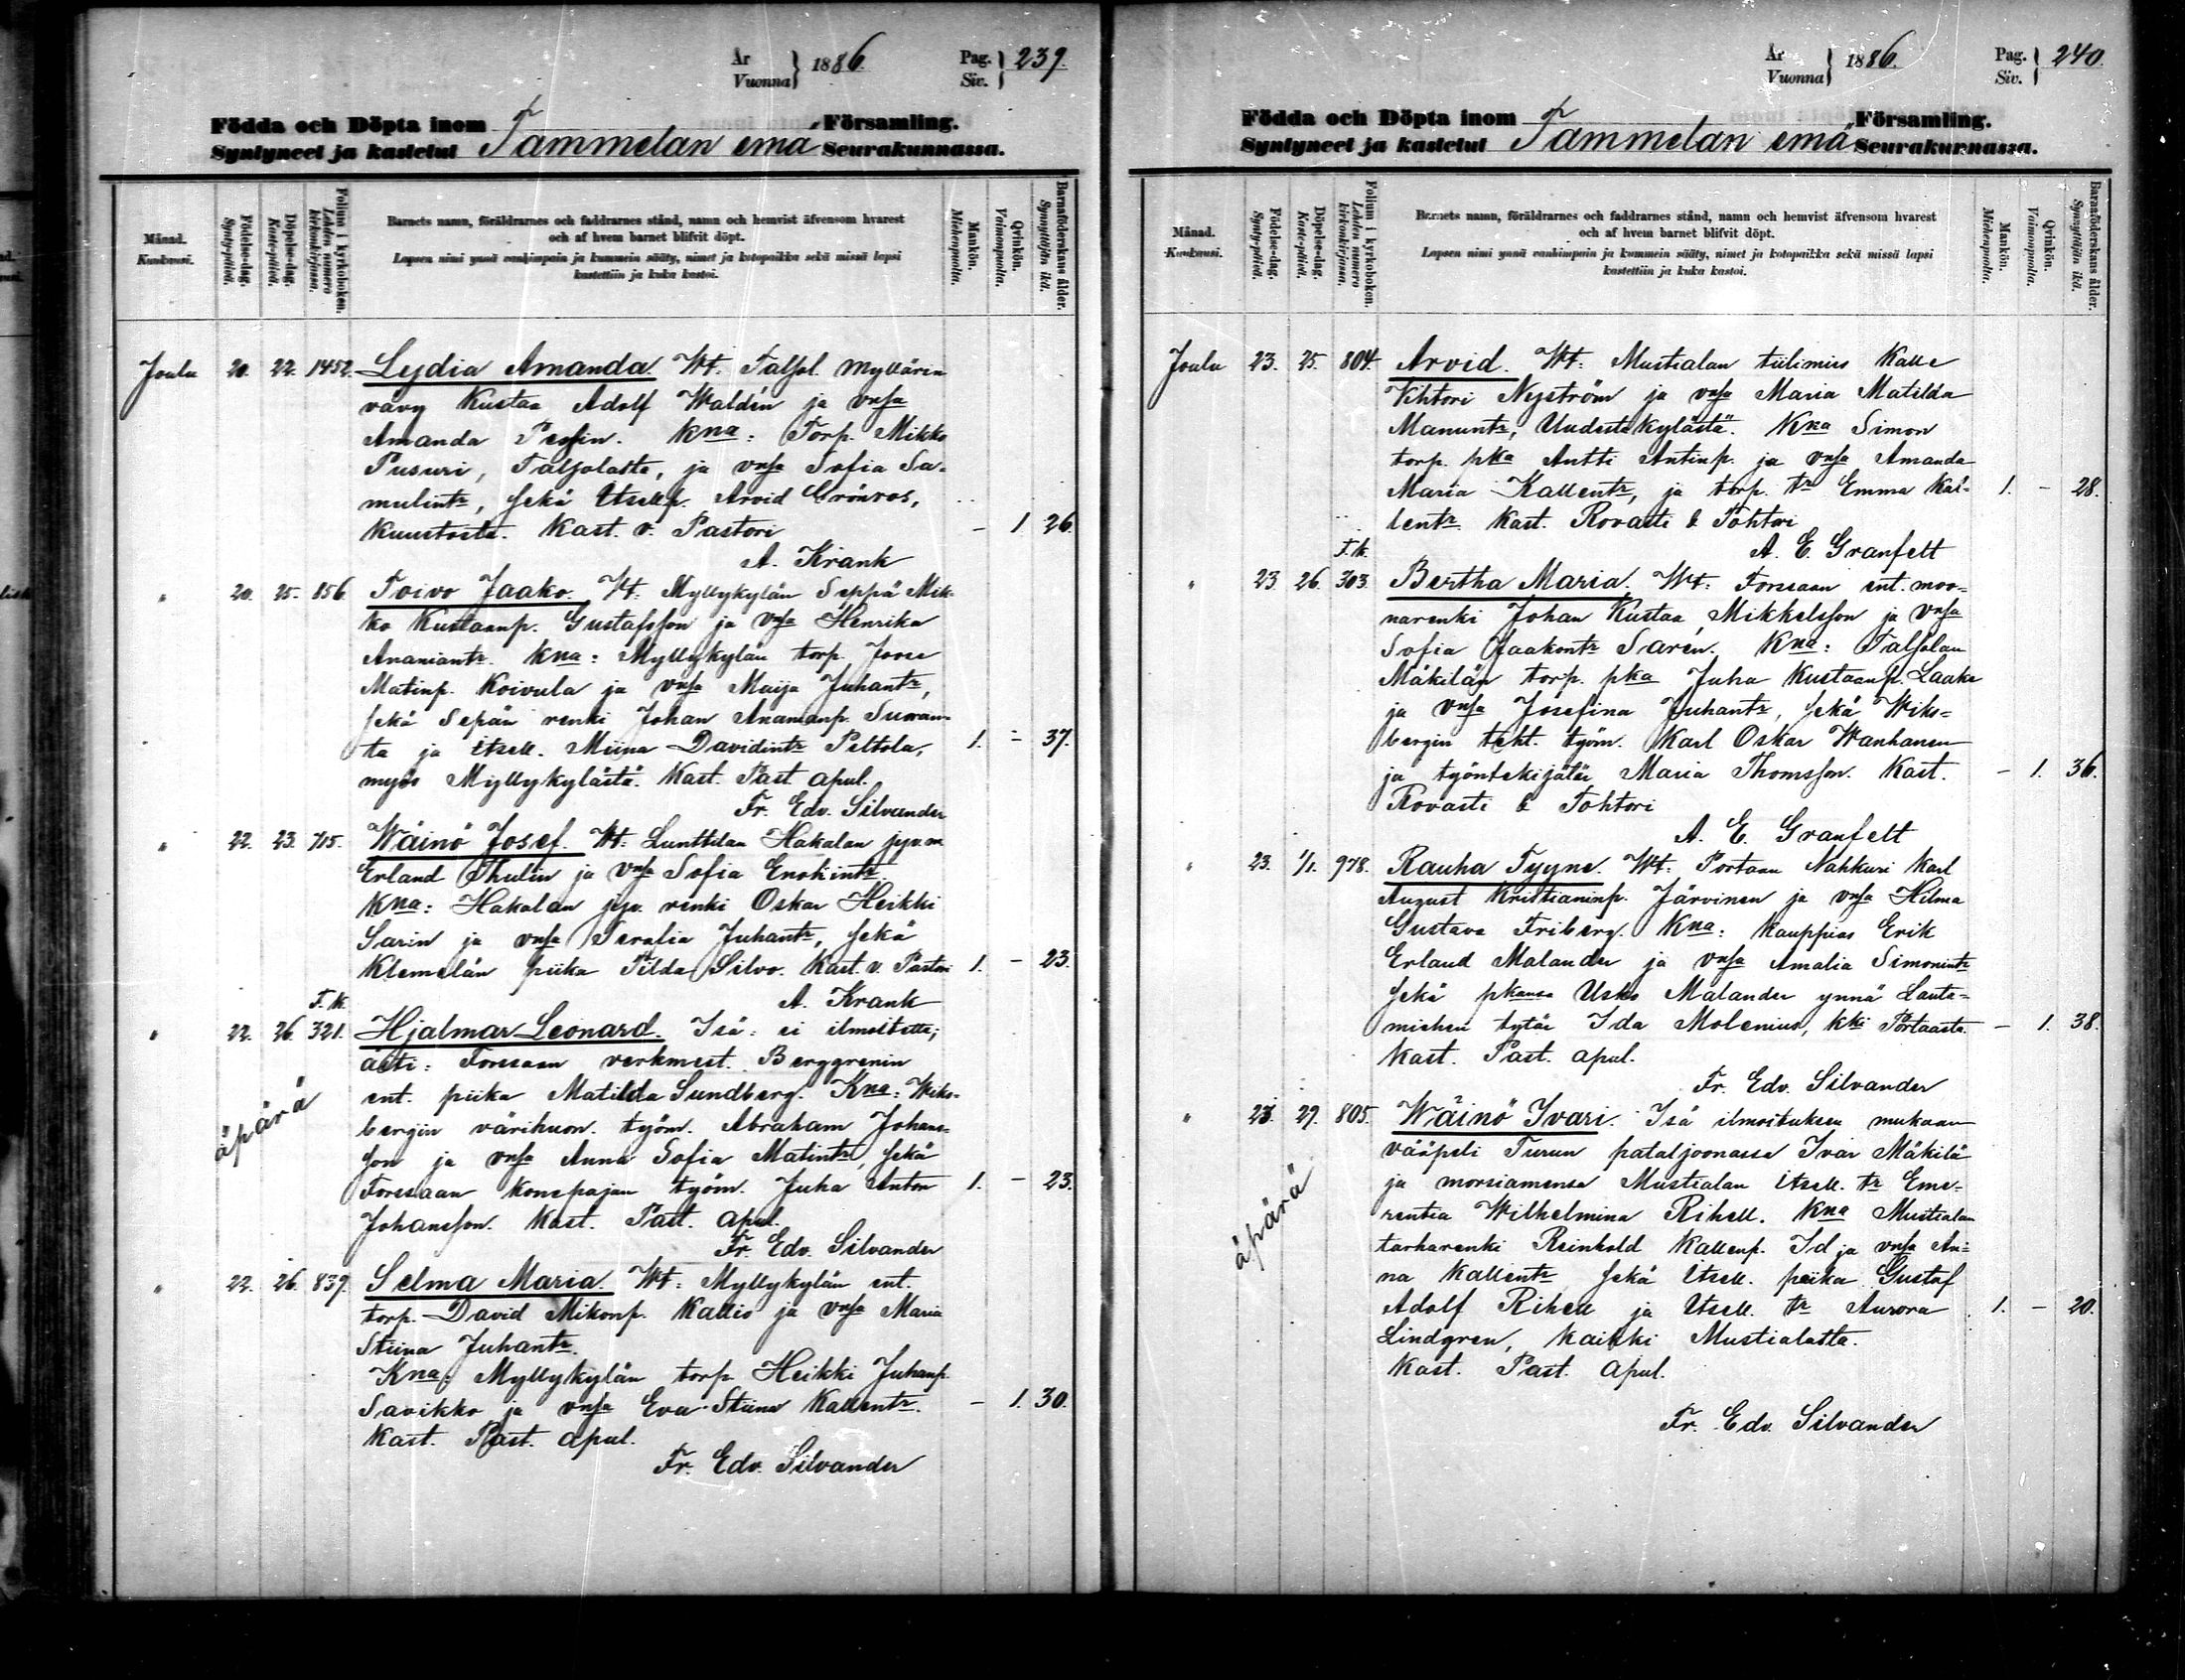 År
Vuonna } 1886. Pag.
Siv. } 239.
Födda och Döpta inom Församling.
Syntyneet ja kastetut Tammelan emä Seurakunnassa.
Månad.
Kuukausi.
Födelse-dag.
Synty-päivä.
Döpelse-dag.
Kaste-päivä.
Folium i kyrkoboken.
Lehden numero
kirkonkirjassa.
Barnets namn, föräldrarnes och faddrarnes stånd, namn och hemvist äfvensom hvarest
och af hvem barnet blifvit döpt.
Lapsen nimi ynnä vanhimpain ja kummein sääty, nimet ja kotopaikka sekä missä lapsi
kastettiin ja kuka kastoi.
Mankön.
Miehenpuolta.
Qvinkön.
Vaimonpuolta.
Barnaföderskans ålder.
Synnyttäjän ikä.
Joulu 20. 22. 1452. Lydia Amanda. Wt. Taljol. Myllärin
vävy Kustaa Adolf Waldén ja vnsa
Amanda. Kna: Torp. Mikko
Pusuri, Taljolasta, ja vnsa Sofia Sa-
mulintr, sekä Itsellp. Arvid Grönros,
Kuustosta. Kast. v. Pastori - 1. 26.
A. Krank
" 20. 25. 856. Toivo Jaako. Wt: Myllykylän Seppä Mik-
ko Kustaanp. Gustafsson ja Vnsa Henrika
Ananiantr. Kna: Myllykylän torp. Joose
Matinp. Koivula ja vnsa Maija Juhantr,
sekä Sepän renki Johan Ananianp. Suvan-
ta ja itsell. Miina Davidintr Peltola, 1. - 37.
myös Myllykylästä. Kast. Past. apul.
Fr. Edv. Silvander
" 22. 23. 715. Wäinö Josef. Wt: Lunttilan Hakalan jyv.m
Erland Thulin ja Vnsa Sofia Enokintr.
Kna: Hakalan jyv. renki Oskar Heikki
Sarin ja vnsa Serafia Juhantr, sekä
Klemelän piika Tilda Silvo. Kast. v. Pastori 1. - 23.
A. Krank
T.K.
" 22. 26. 321. Hjalmar Leonard. Isä: ei ilmoitettu;
äiti: Forssan verkmest. Berggrenin
ent. piika Matilda Sundberg. Kna: Wiks-
äpärä
bergin värihuon. työm. Abraham Johans-
son ja vnsa Anna Sofia Matintr, sekä
Forssaan konepajan työm. Juha Anton 1. - 23.
Johansson. Kast. Past. apul.
Fr. Edv. Silvander
" 22. 26. 839. Selma Maria. Wt: Myllykylän ent.
torp. David Mikonp. Kallio ja vnsa Maria
Stiina Juhantr.
Kna: Myllykylän torp. Heikki Juhanp.
Savikko ja vnsa Eva Stiina Kallentr. - 1. 30.
Kast. Past. apul.
Fr. Edv. Silvander
År
Vuonna } 1886. Pag.
Siv. } 240.
Födda och Döpta inom Församling.
Syntyneet ja kastetut Tammelan emä Seurakunnassa.
Månad.
Kuukausi.
Födelse-dag.
Synty-päivä.
Döpelse-dag.
Kaste-päivä.
Folium i kyrkoboken.
Lehden numero
kirkonkirjassa.
Barnets namn, föräldrarnes och faddrarnes stånd, namn och hemvist äfvensom hvarest
och af hvem barnet blifvit döpt.
Lapsen nimi ynnä vanhimpain ja kummein sääty, nimet ja kotopaikka sekä missä lapsi
kastettiin ja kuka kastoi.
Mankön.
Miehenpuolta.
Qvinkön.
Vaimonpuolta.
Barnaföderskans ålder.
Synnyttäjän ikä.
Joulu 23. 25. 804. Arvid. Wt: Mustialan tiilimies Kalle
Vihtori Nyström ja vnsa Maria Matilda
Manuntr, Uudestakylästä. Kna Simon
torp. pka Antti Antinp. ja vnsa Amanda
Maria Kallentr, ja torp. tr Emma Kal- 1. - 28.
lentr. Kast. Rovasti & Tohtori
A. E. Granfelt
T.K.
" 23 26. 303. Bertha Maria. Wt: Forssaan ent. moo-
narenki Johan Kustaa Mikkelsson ja Vnsa
Sofia Jaakontr Sarén. Kna: Taljolan
Mäkilän torp. pka Juha Kustaanp. Laaka
ja Vnsa Josefina Juhantr, sekä Wiks-
bergin teht. työm. Karl Oskar Wanhanen
ja työntekijätär Maria Thomsson. Kast. - 1. 36.
Rovasti & Tohtori
A. E. Granfelt
" 23. 1/1. 978. Rauha Tyyne. Wt: Portaan Nahkuri Karl
August Kristianinp. Järvinen ja vnsa Hilma
Gustava Friberg. Kna: Kauppias Erik
Erland Malander ja Vnsa Amalia Simonintr
sekä pkansa Usko Malander ynnä Lauta-
miehen tytär Ida Molenius, kki Portaasta. - 1. 38.
Kast. Past. apul.
Fr. Edv. Silvander
" 23. 29. 805. Wäinö Ivari. Isä ilmoituksen mukaan
vääpeli Turun pataljoonassa Ivar Mäkilä
äpärä
ja morsiamensa Mustialan itsell. tr Eme-
rentia Wilhelmina Rihell. Kna Mustialan
tarharenki Reinhold Kallenp. Id ja vnsa An-
na Kallentr sekä itsell. poika Gustaf
Adolf Rihell ja Itsell. tr Aurora 1. - 20.
Lindgren, kaikki Mustialasta.
Kast. Past. apul.
Fr. Edv. Silvander